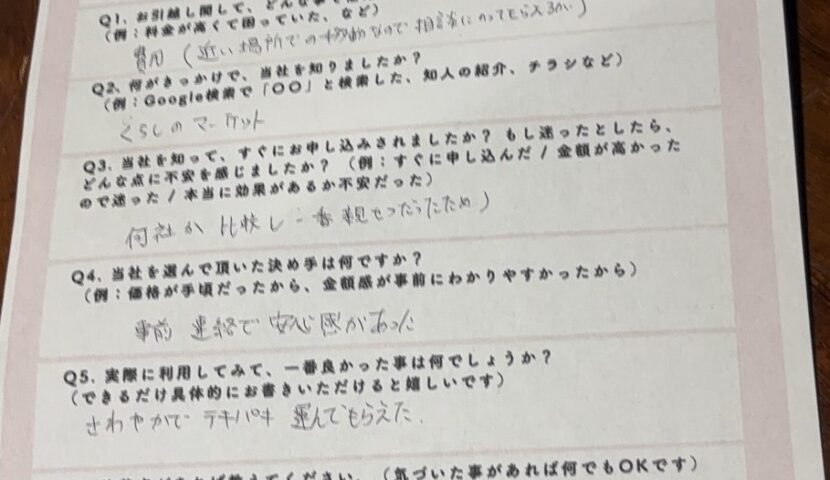 Q1. お引越し関して、どんな事で
（例：料金が高くて困っていた、など）
費用（近い場所での移動なので相談にのってもらえるか）
Q2. 何がきっかけで、当社を知りましたか？
（例：Google検索で「〇〇」と検索した、知人の紹介、チラシなど）
くらしのマーケット
Q3. 当社を知って、すぐにお申し込みされましたか？ もし迷ったとしたら、
どんな点に不安を感じましたか？（例：すぐに申し込んだ / 金額が高かった
ので迷った / 本当に効果があるか不安だった）
何社か 比較し 一番 親せつだったため）
Q4. 当社を選んで頂いた決め手は何ですか？
（例：価格が手頃だったから、金額感が事前にわかりやすかったから）
事前 連絡で 安心感があった
Q5. 実際に利用してみて、一番良かった事は何でしょうか？
（できるだけ具体的にお書きいただけると嬉しいです）
さわやかで テキパキ 運んでもらえた.
教えてください。（気づいた事があれば何でもOKです）